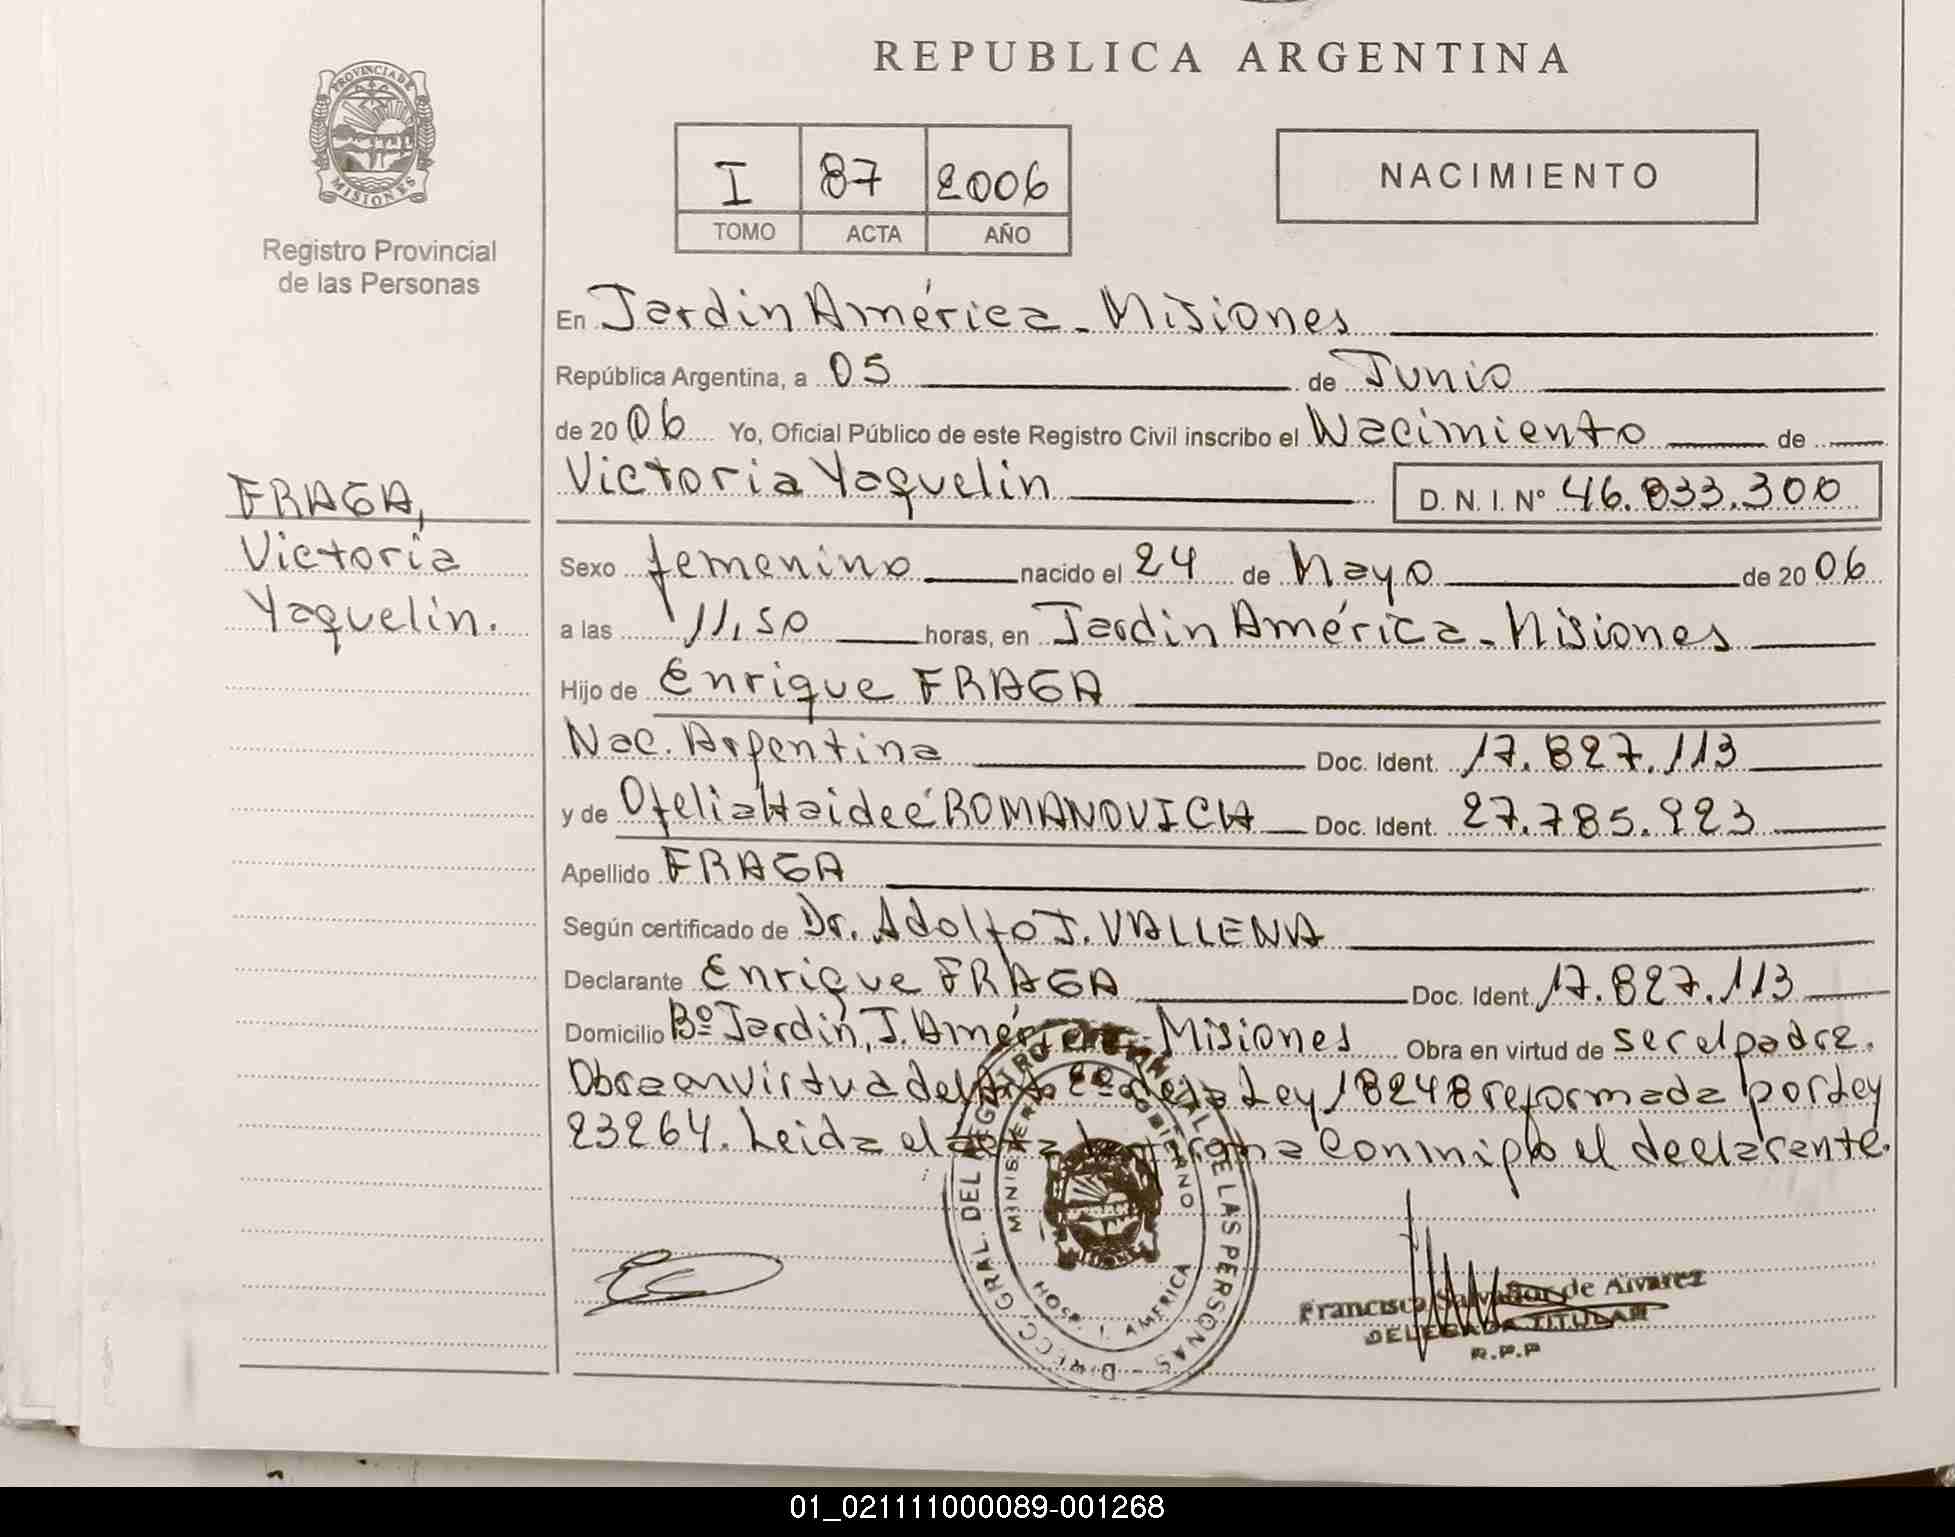 REPUBLICA ARGENTINA
PROVINCIA DE
MISIONES
Registro Provincial
de las Personas
I 87 2006
TOMO ACTA AÑO
NACIMIENTO
En Jardin América - Misiones
República Argentina, a 05 de Junio
de 2006 Yo, Oficial Público de este Registro Civil inscribo el Nacimiento de
Victoria Yaquelin D. N. I. Nº 46.833.300
FRAGA,
Victoria
Yaquelin.
Sexo femenino nacido el 24 de Mayo de 2006
a las 11,50 horas, en Jardin América - Misiones
Hijo de Enrique FRAGA
Nac. Argentina Doc. Ident. 17.827.113
y de Ofelia Haideé ROMANOVICH Doc. Ident. 27.785.923
Apellido FRAGA
Según certificado de Dr. Adolfo J. VALLENA
Declarante Enrique FRAGA Doc. Ident. 17.827.113
Domicilio Bº Jardín, J. América - Misiones Obra en virtud de ser el padre.
Obra en virtud del Art. 2º de la Ley 18248 reformada por Ley
23264. Leida el acta la firma conmigo el declarante.
DIRECC. GRAL. DEL REGISTRO PROVINCIAL DE LAS PERSONAS
MINISTERIO DE GOBIERNO
MISIONES
HOSP. J. AMERICA
Francisca Salvador de Alvarez
DELEGADA TITULAR
R.P.P
01_021111000089-001268